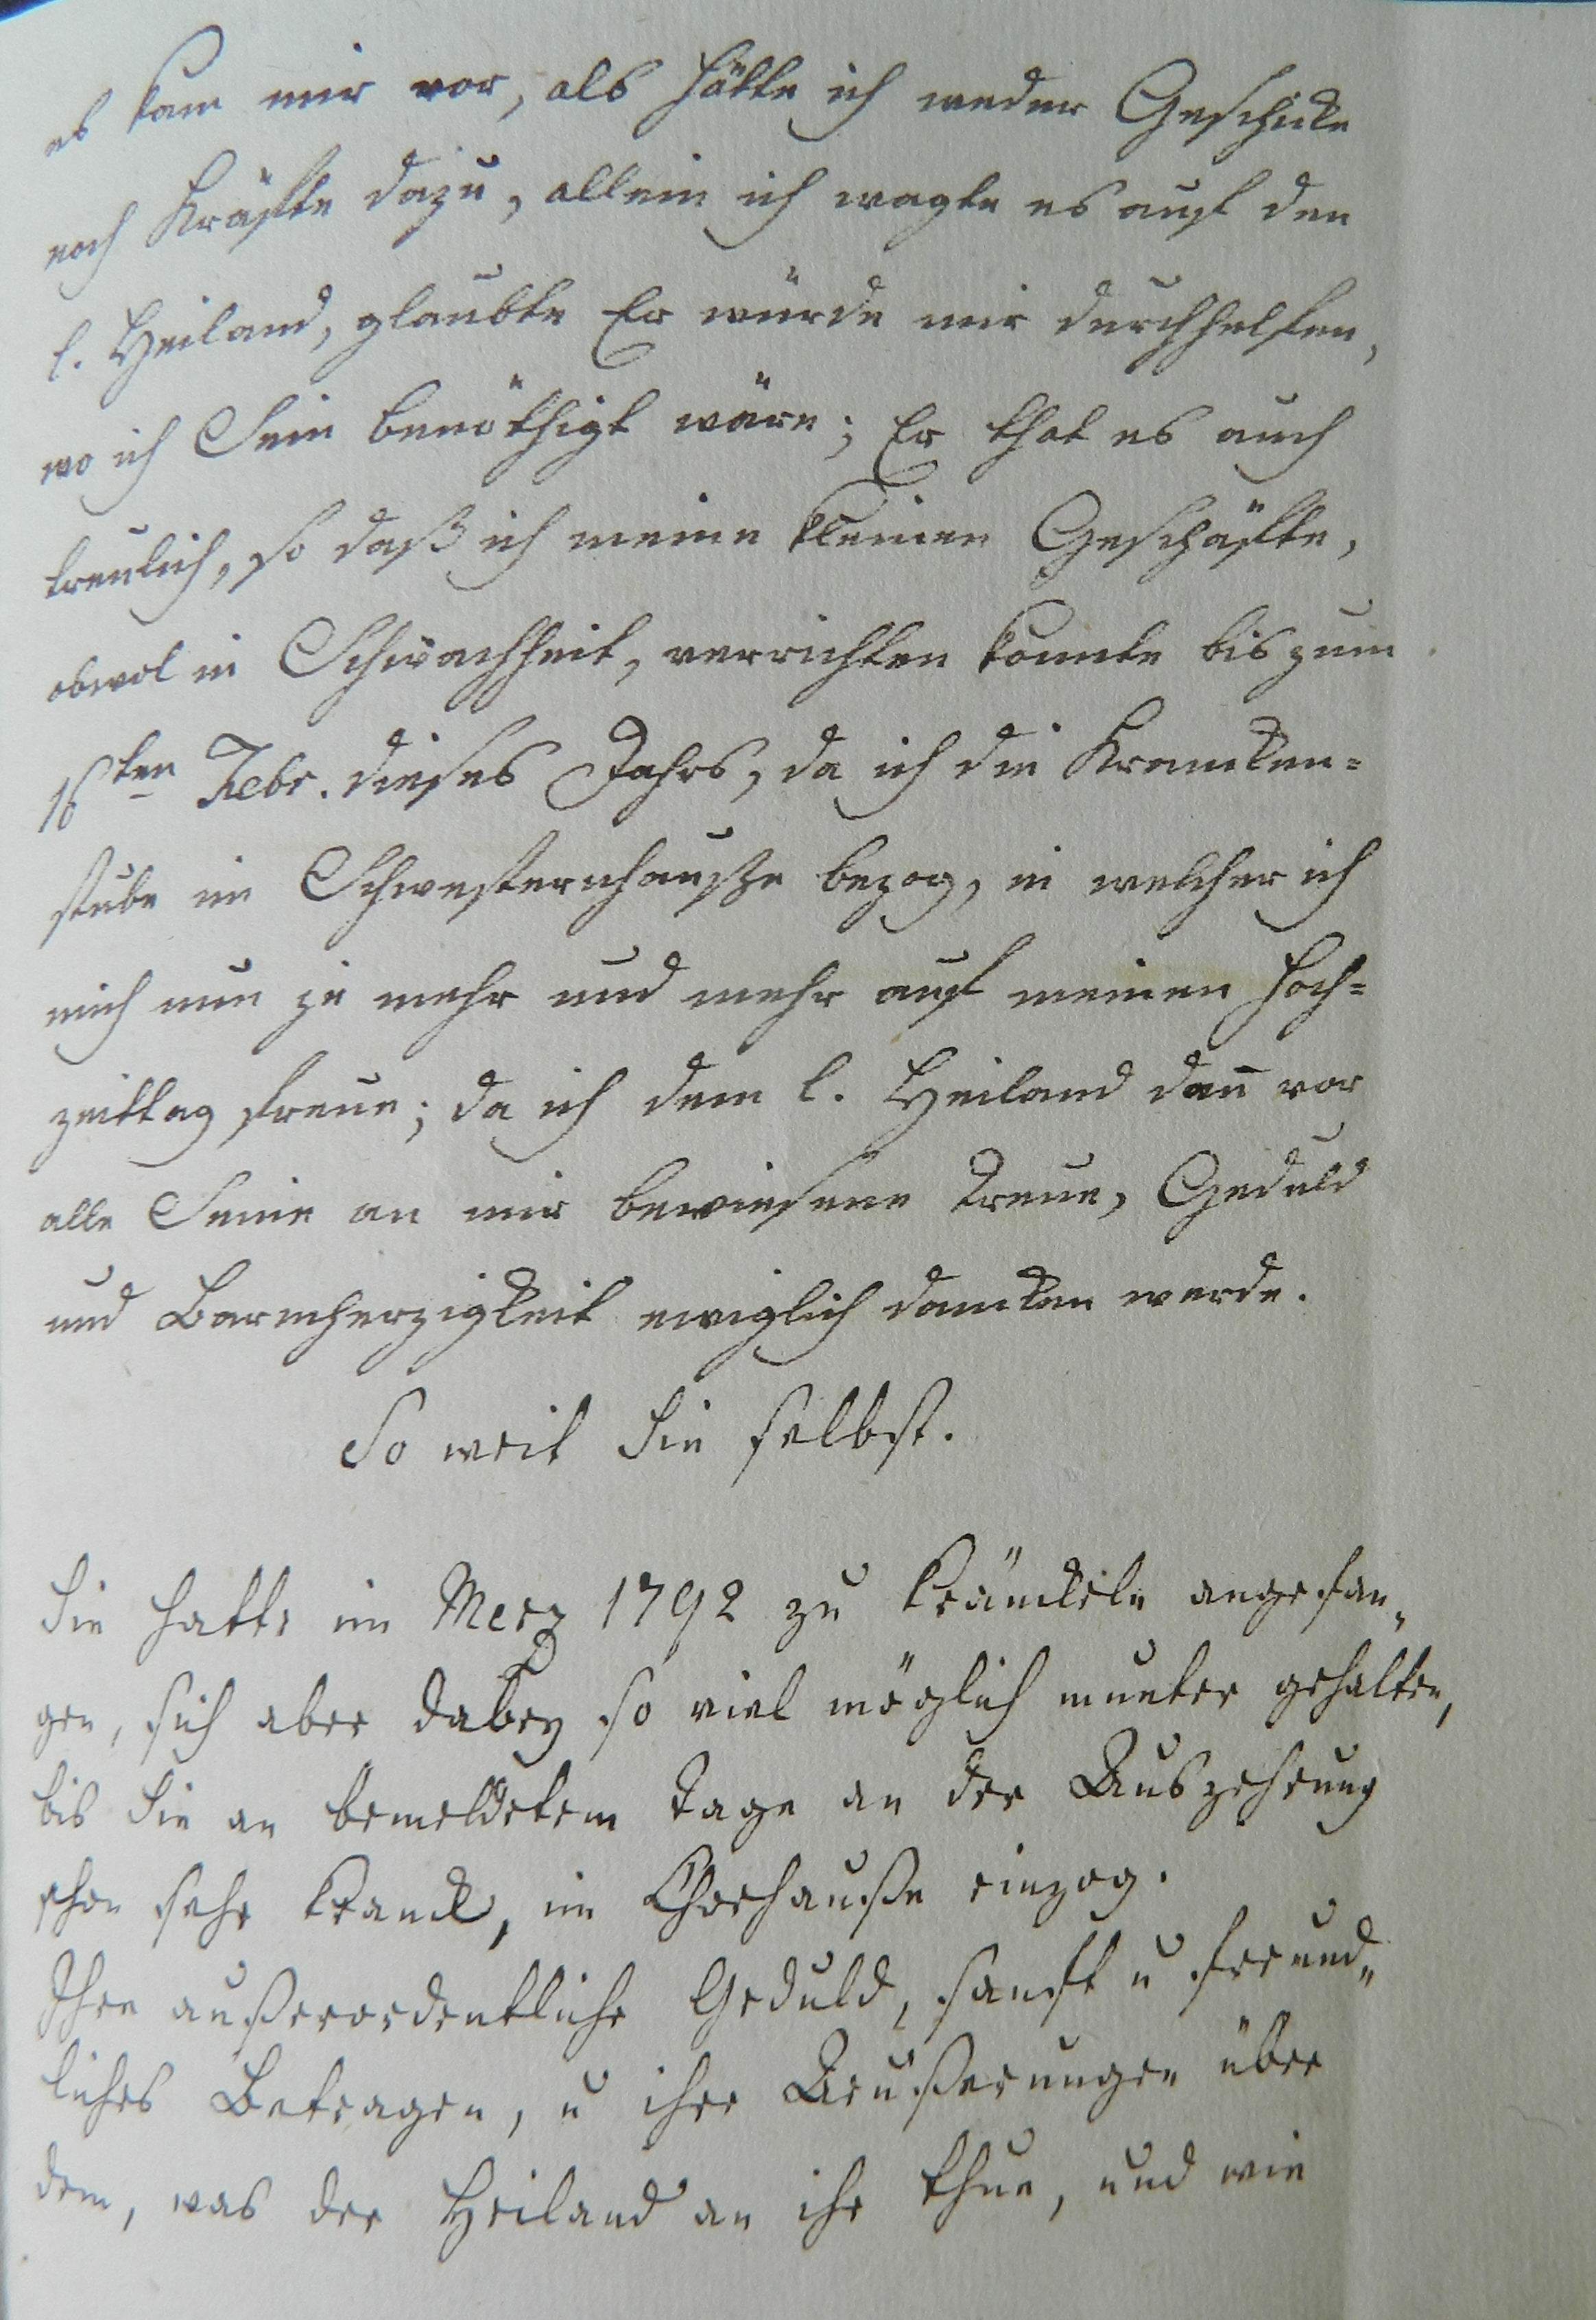 es kam mir vor, als hätte ich weder Geschicke
noch Kräfte dazu, allein ich wagte es auf den
l. Heiland, glaubte Er würde mir durchhelfen,
wo ich Sein benöthigt wäre; Er that es auch
treulich, so daß ich meine kleinen Geschäfte,
obwol in Schwachheit, verrichten konnte bis zum
16ten Febr. dieses Jahrs, da ich die Krancken=
stube im Schwesternhauße bezog, in welcher ich
mich nun je mehr und mehr auf meinen Hoch=
zeittag freue; da ich dem l. Heiland dan̄ vor
alle Seine an mir bewiesene Treue, Geduld
und Barmherzigkeit ewiglich dancken werde.
So weit Sie selbst.
Sie hatte im Merz 1792 zu kränckeln angefan„
gen, sich aber dabey so viel möglich munter gehalten,
bis Sie an bemeldetem Tage an der Auszehrung
schon sehr kranck, im Chorhauße einzog.
Ihre außerordentliche Geduld, sanft u freund„
liches Betragen, u ihre Aeußerungen über
dem, was der Heiland an ihr thue, und wie